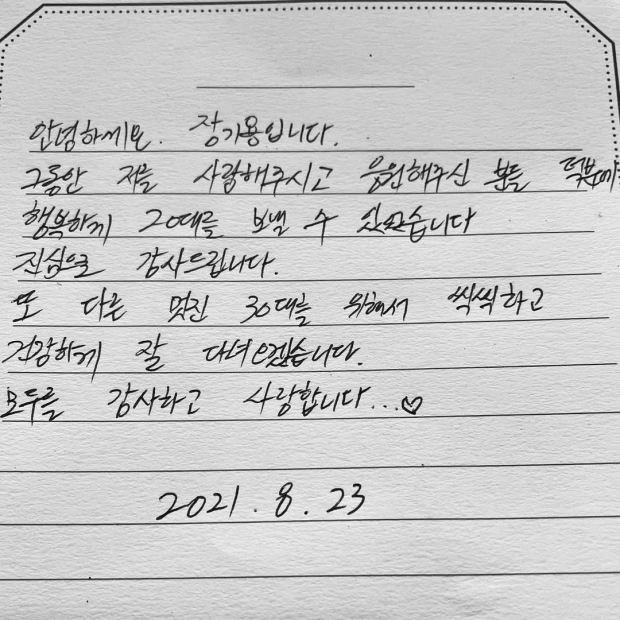 안녕하세요. 장기용입니다.
그동안 저를 사랑해주시고 응원해주신 분들 덕분에
행복하게 20대를 보낼 수 있었습니다
진심으로 감사드립니다.
또 다른 멋진 30대를 위해서 씩씩하고
건강하게 잘 다녀오겠습니다.
모두들 감사하고 사랑합니다...♡
2021. 8. 23